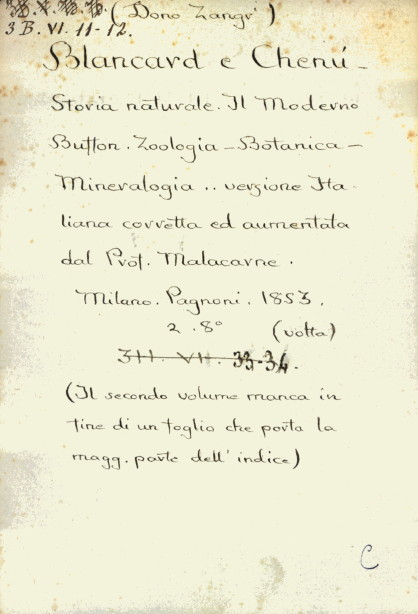 (Dono Zangr')
3 B. VI. 11-12.
Blancard e Chenú -
Storia naturale. Il Moderno
Buffon. Zoologia - Botanica -
Mineralogia .. versione Ita-
liana corretta ed aumentata
dal Prof. Malacarne.
Milano. Pagnoni. 1853.
2. 8° (volta)
3II. VII. 33-34.
(Il secondo volume manca in
fine di un foglio che porta la
magg. parte dell' indice)
C